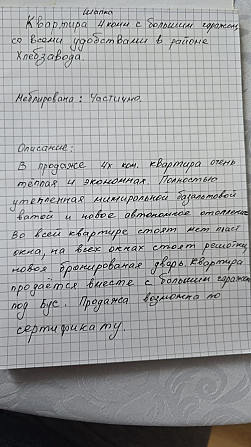 Шапка
Квартира 4комн с большим гаражом
со всеми удобствами в районе
Хлебзавода.
Меблирована: Частично.
Описание:
В продаже 4х ком. квартира очень
теплая и экономная. Полностью
утепленная миниральной базальтовой
ватой и новое автономное отопление
Во всей квартире стоят мет. пласт
окна, на всех окнах стоят решотки,
новая бронированая дверь. Квартира
продаётся вместе с большим гаражом
под Бус. Продажа возможна по
сертификату.